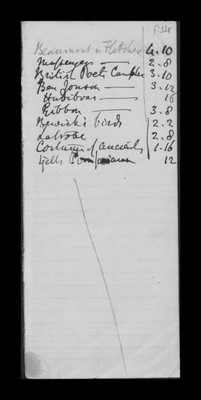 Beaumont & Fletcher 4.10
Massengers — 2.8
British Poets Campbell 3.10
Ben Jonson — 3.12
Hudibras — 16
Gibbon — 3.8
Bewick's birds 2.2
Labrobe 2.8
Costumes of ancients 1.16
Gells Pompeiana 12